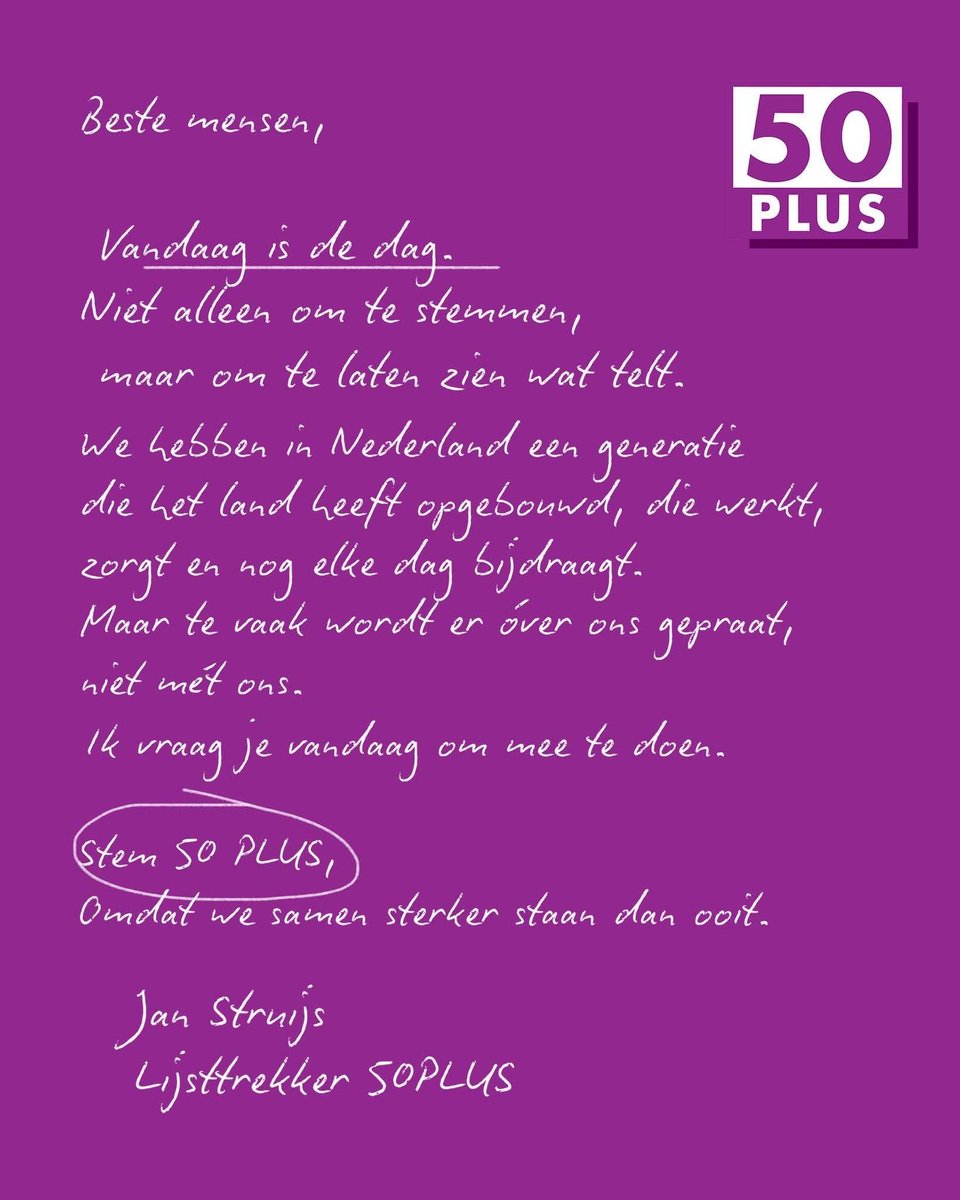 50
PLUS
Beste mensen,
Vandaag is de dag.
Niet alleen om te stemmen,
maar om te laten zien wat telt.
We hebben in Nederland een generatie
die het land heeft opgebouwd, die werkt,
zorgt en nog elke dag bijdraagt.
Maar te vaak wordt er óver ons gepraat,
niet mét ons.
Ik vraag je vandaag om mee te doen.
Stem 50 PLUS,
Omdat we samen sterker staan dan ooit.
Jan Struijs
Lijsttrekker 50PLUS